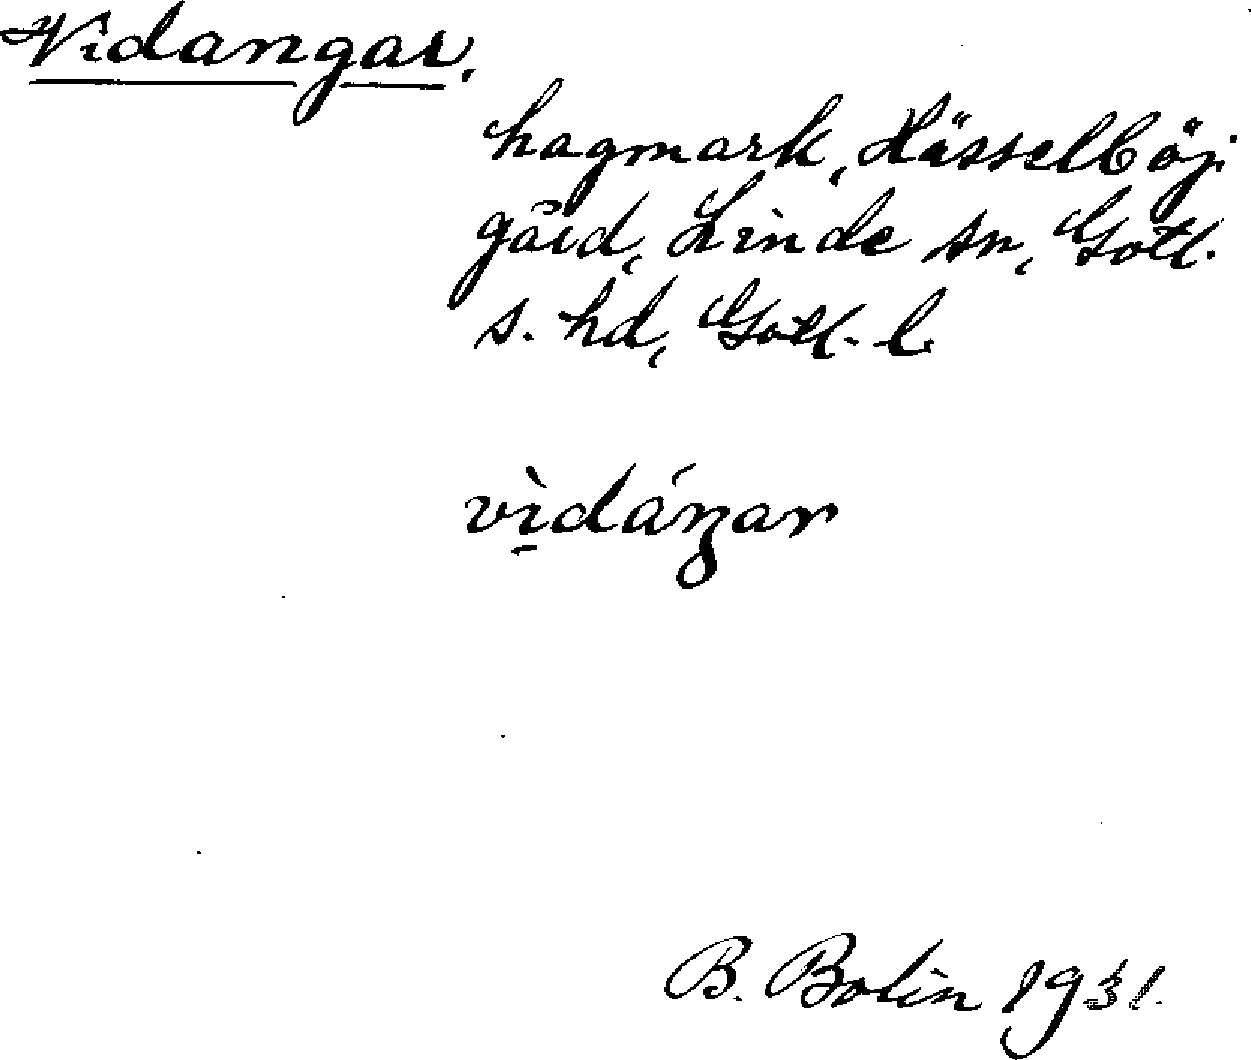 Vidangar.
hagmark, Hässelböj
gård, Linde sn, Gotl.
s. hd, Gotl. l.
vìdáŋar
B. Bolin 1931.